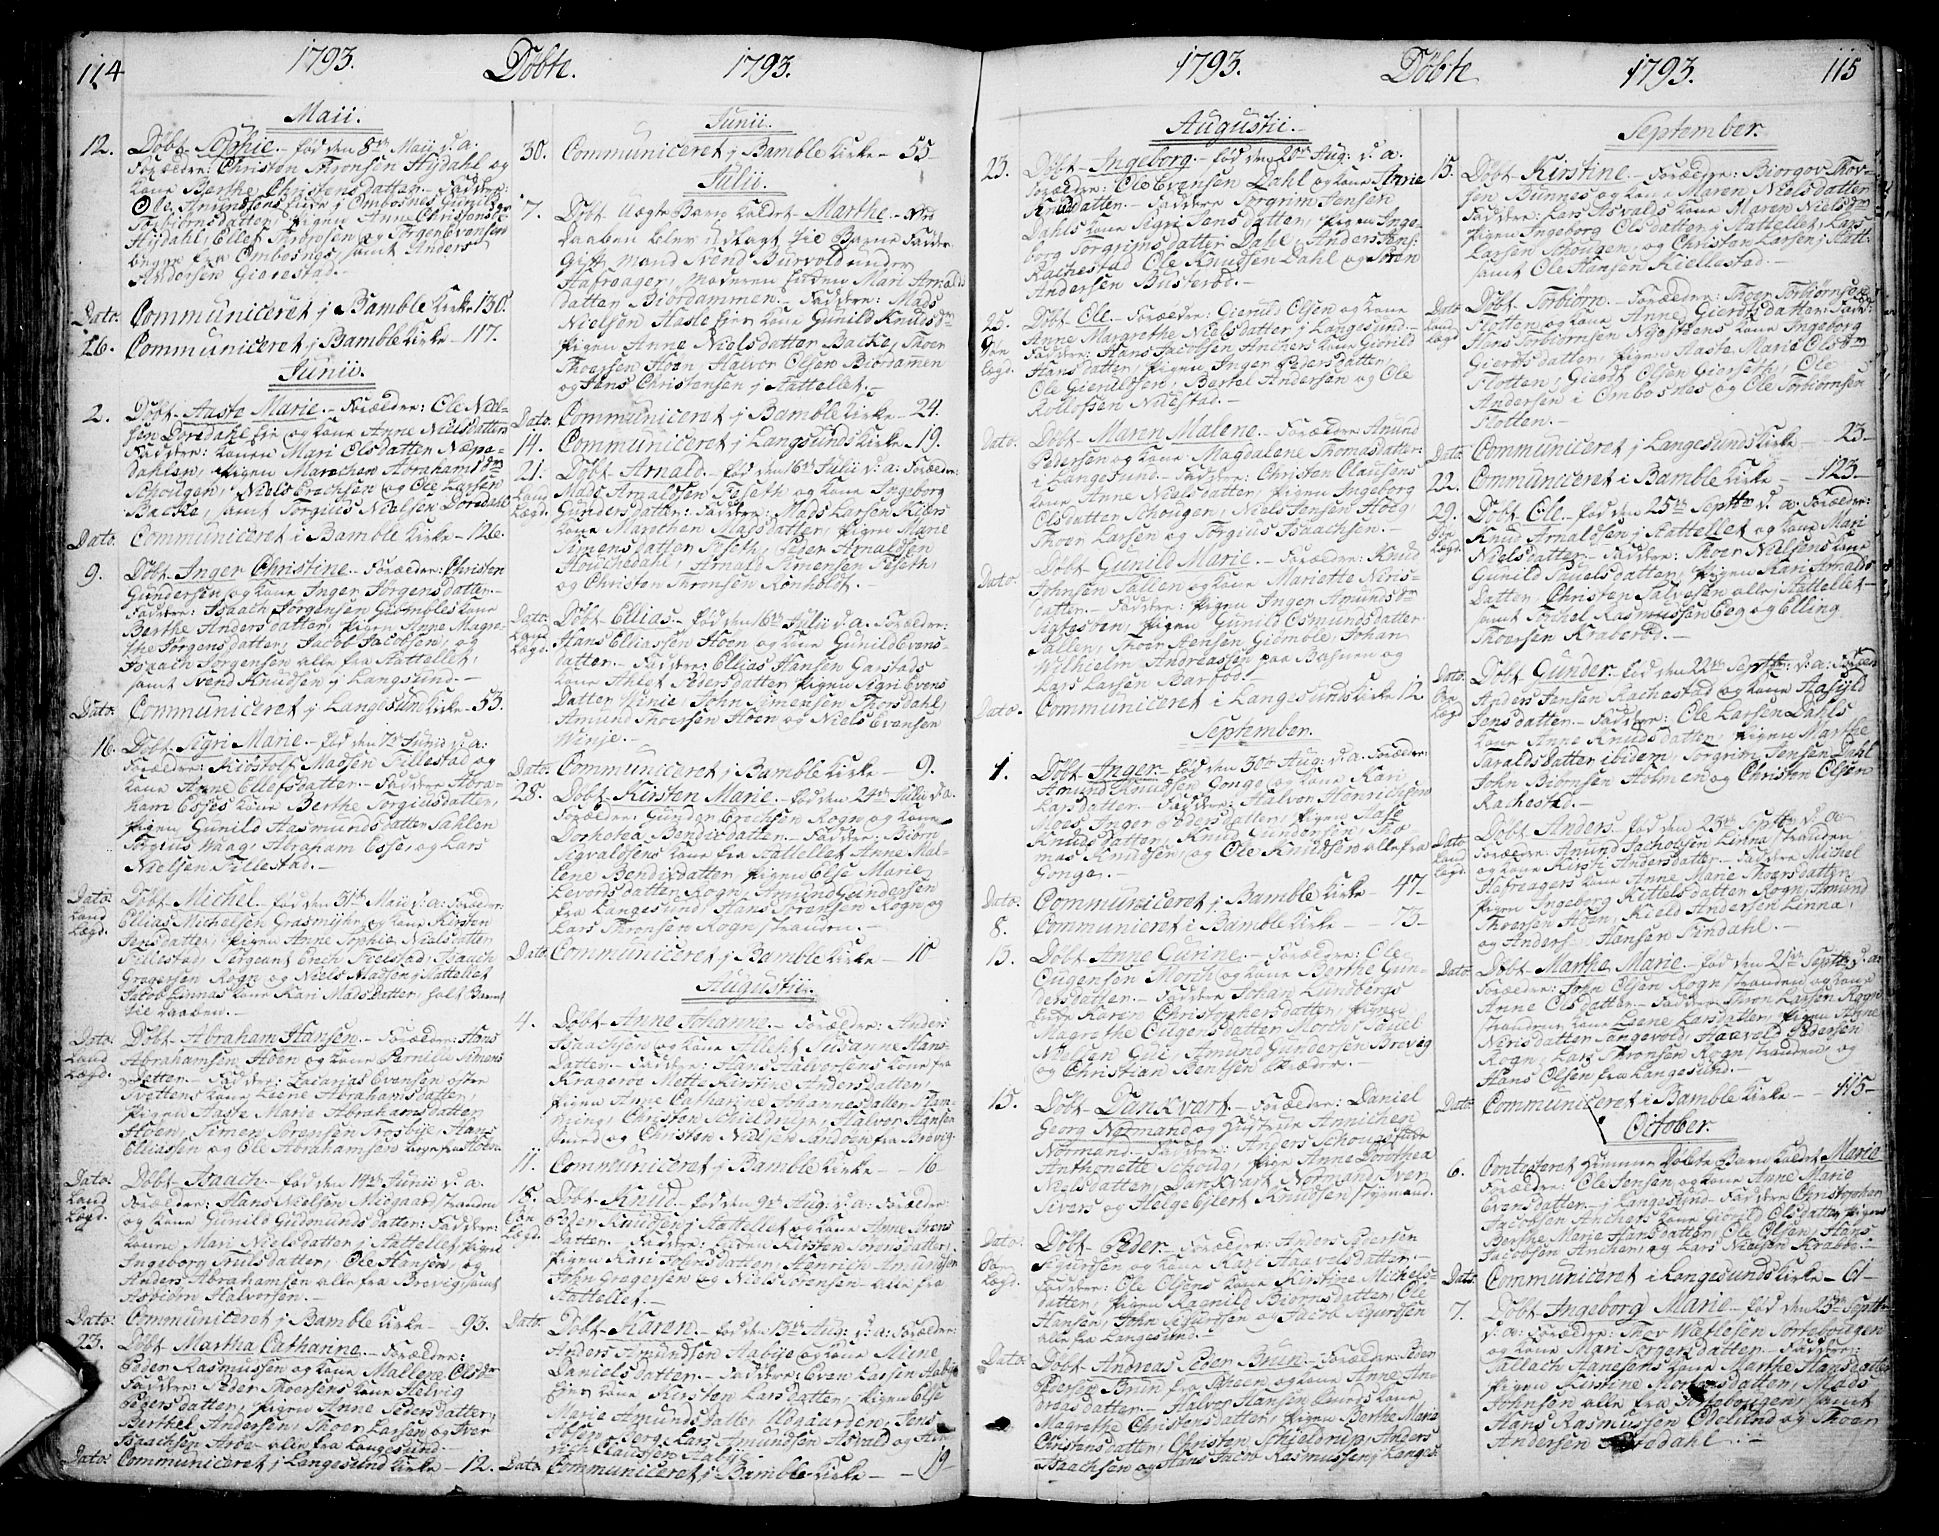 114
1793. Döbte. 1793.
Maii.
12. Döbt Sophie. födt den 8de Maii d: a:
Forældre: Christen Thronsen Hydahl og
kone Berthe Christensdatter. Faddere:
Ole Amundsens kone i Ombosnes Gunild
Torbiörnsdatter, Pigen Anne Christens
Hydahl, Ellef Thronsen og Evensen
begge fra Ombosnes, samt Anders
Andersen Gierestad.
Dato. Communiceret i Bamble Kirke 130.
26. Communiceret i Bamble Kirke 117.
Junii.
2. Döbt Aaste Marie. Forældre: Ole Niel-
sen Dordahl og kone Anne Nielsdatter
Faddere: konen Mari Olsdatter
dahlen, Pigen Marichen Abrahamsd.
Schougen, Niels Erichsen og Ole Larsen
Backe, samt Torgius Nielsen Dordahl
Dato. Communiceret i Bamble Kirke 126.
9. Döbt Inger Christine. Forældre: Christen
Gundersen og kone Inger Jörgensdatter.
Faddere: Isaach Jörgensen Giömbles kone
Berthe Andersdatter, Pigen Anne Magre-
the Jörgensdatter, Jacob Jacobsen, og
Isaach Jörgensen alle fra Stattellet,
samt Svend Knudsen i Langesund.
Dato. Communiceret i Langesund Kirke 53.
16. Döbt Sigri Marie. födt den 7de Junii d: a:
Forældre: Kidstolf Madsen Tillestad og
kone Anne Ellefsdatter. Faddere Abra-
ham Esses kone Berthe Torgiusdatter,
Pigen Gunild Aasmundsdatter Sahlen
Torgius Waag, Abraham Esse, og Lars
Nielsen Tillestad.
Dato. Land Lægd. Döbt Michel. födt den 31te Maii d: a: Forældre:
Ellias Michelsen Grasmyhr og kone Kirsten
Jensdatter, Pigen Anne Sophie Nielsdatter
Tillestad, Sergeant Erich Isaach
Gregersen Rogn og Niels Madsen i Stattellet
Jacob Linnas kone Kari Madsdatter, holt Barnet
til Daaben.
Dato. Land Lægd. Döbt Abraham Hansen. Forældre: Hans
Abrahamsen Hoen og kone Pernille Simens
Datter. Faddere: Zacarias Evensen
Tvettens kone Leene Abrahamsdatter,
Pigen Aaste Marie Abrahamsdatter
Hoen, Simen Sörensen Trosbye, Hans
Elliasen og Ole Abrahamsen begge fra Hoen.
Dato. Land Lægd. Döbt Isaach. födt den 14de Junii d: a.
Forældre: Hans Nielsen Stranden
og kone Gunild Gudmunds datter. Faddere:
konen Mari Nielsdatter i Stattellet Pigen
Ingeborg Trulsdatter, Ole Hansen, og
Anders Abrahamsen alle fra Brevig, samt
Asbiörn Halvorsen.
Dato. Communiceret i Bamble Kirke 93.
23. Döbt Martha Cathanne. Forældre:
Peder Rasmussen og kone Mallene Olsdr
Faddere: Peder Thoersens kone Helvig
Pedersdatter, Pigen Anne Pedersdatter,
Berthel Andersen, Thoer Larsen og Iver
Isaachsen alle fra Langesund.
Dato. Communiceret i Langesund Kirke 12.
Junii.
30. Communiceret i Bamble Kirke 55
Julii.
7. Döbt Uægte Barn kaldet Marthe. Ved
Daaben blev udlagt til Barne Fadder
Gift Mand Svend Burvold under
Hafreager, Moderen Mari Arnolds
datter Biordammen. Faddere: Mads
Nielsen Hasler kone Gunild Knudsd.
Pigen Anne Nielsdatter Backe, Thoer
Thoersen Hoen, Halvor Olsen Biordammen
og Jens Christensen i Stattellet.
Dato. Communiceret i Bamble Kirke 24.
14. Communiceret i Langsunds Kirke 19.
21. Land Lægd. Döbt Arnald. födt den 16de Julii d: a: Forældre:
Mads Arnaldsen Feseth og kone Ingeborg
Gundersdatter. Faddere: Mads Larsen Kiærs
kone Marichen Madsdatter, Pigen Marie
Simensdatter Feseth, Peder Arnaldsen
Arnald Simensen Feseth,
og Christen Thronsen Rönholdt.
Dato. Land Lægd. Döbt Ellias. födt den 16de Julii d: a. Forældre:
Hans Elliassen Hoen og kone Gunild Evens-
datter. Faddere: Ellias Hansen Gastads
kone Ahlet Pedersdatter, Pigen Sigri Evens
Datter Winie, John Simensen Thorsdahl,
Amund Thoersen Hoen og Niels Evensen
Winje.
Dato. Communiceret i Bamble Kirke 9.
28. Döbt Kirsten Marie. födt den 24de Julii d. a.
Forældre: Gunder Erichsen Rogn og kone
Dorhotea Bendixdatter. Faddere: Biörn
Sigvaldsens kone fra Stattellet Anne Mal-
lene Bendixdatter, Pigen Else Marie
Levorsdatter Rogn, Amund Gundersen
fra Langesund, Hans Sörensen Rogn og
Lars Thronsen Rogn Stranden.
Dato. Communiceret i Bamble Kirke 10
Augustii.
4. Döbt Anne Johanne. Forældre: Anders
Isaachsen og kone Allehet Susanne Hans-
datter. Faddere: Hans Halvorsens kone fra
Krageröe Mette Kirstine Andersdatter,
Pigen Anne Catharine Johannesdatter Flem-
ming, Christen Schieldrup, Halvor Hansen
Smed og Christen Nielsen Sandöen fra Brevig.
11. Communiceret i Bamble Kirke 16
18. Söe Lægd. Döbt Knud. födt den 9de Aug: d: a: Forældre
Peder Knudsen i Stattellet og kone Anne Jens
Datter. Faddere: Enken Kirsten Sörensdatter,
Pigen Kari Johnsdatter, Henrich Amundsen
John Gregersen og Niels Sörensen alle fra
Stattellet.
Dato. Döbt Karen. födt den 13de Aug: d: a: Forældre:
Anders Amundsen Aabye og kone Miene
Danielsdatter. Faddere: Even Larsen Aabye
kone Kirsten Larsdatter, Pigen Else
Marie Amundsdatter Udgaarden, Jens
Olsen Berg, Lars Amundsen Asvald og Hen-
rich Claussen Aabye.
Dato. Communiceret i Bamble Kirke 19
1793. Döbte 1793. 115
Augustii.
23. Döbt Ingeborg. födt den 20de Aug: d: a:
Forældre: Ole Evensen Dahl og kone Marie
Knudsdatter. Faddere Torgrim Jensen
Dahls kone Sigri Jensdatter, Pigen Inge-
borg Torgrimsdatter Dahl, Anders Jens:
Rachestad Ole Knudsen Dahl og Sören
Andersen Buströd.
25. Söe Lægd. Döbt Ole. Forældre: Gierull Olsen og kone
Anne Margrethe Nielsdatter i Langesund.
Faddere: Hans Jacobsen Anchers kone Giorild
Hansdatter, Pigen Inger Pedersdatter,
Ole Gierulsen, Bertel Andersen og Ole
Rollofsen Nidestad.
Dato. Döbt Maren Malene. Forældre Amund
Pedersen og kone Magdalene Thomasdatter
i Langesund. Faddere: Christen Clausens
kone Anne Nielsdatter, Pigen Ingeborg
Olsdatter Schougen, Niels Jensen Hoeg,
Thoer Larsen og Torgius Isaachsen.
Dato. Döbt Gunild Marie. Forældre: Knud
Johnsen Sallen og kone Mariette Niels-
datter. Faddere: Pigen Inger Amundsdr
Pigen Gunild Osmundsdatter
Sallen, Thoer Jensen Giömble, Johan
Wilhelm Andreassen paa Basnen og
Lars Larsen Aarfoö.
Dato. Communiceret i Langesunds Kirke 12
September.
1. Döbt Inger. födt den 30te Aug: d: a. Forældre:
Amund Knudsen Gonge og kone Kari
Larsdatter. Faddere: Halvor Henrichsen
Moes, Inger Pedersdatter, Pigen Aase
Knudsdatter, Knud Gundersen, Tho-
mas Knudsen, og Ole Knudsen alle fra
Gonge.
Dato. Communiceret i Bamble Kirke 47
8. Communiceret i Bamble Kirke 73
13. Döbt Anne Gurine. Forældre: Ole
Eugensen Morch og kone Berthe Gun-
dersdatter. Faddere Johan Lundbergs
Karen Christophersdatter, Pigen
Magrethe Eugensdatter Morch, Povel
Nielsen Gui, Amund Gundersen Brevig
og Christian Bentsen Skræder.
15. Döbt Dankvart. Forældre: Daniel
Georg Normand og Hustrue Annichen
Normand. Faddere: Anders Schougs
Anthonette Schoug, Pige Anne Dorothea
Nielsdatter, Dankvart Normand, Iver
Sivers og Helge Ejlert Knudsen Normand.
Dato. Söe Lægd. Döbt Peder. Forældre: Anders Pedersen
Sigurtsen og kone Kari Haavelsdatter.
Faddere: Ole Olsens kone Kirstine Michels-
datter, Pigen Ragnild Biörnsdatter, Ole
Hansen, John Sigurtsen og Jacob Sigurtsen
alle fra Langesund.
Dato. Döbt Andreas Peter Brun. Forældre: Peder
Pedersen Brun fra Scheen og kone Anne An-
dreasdatter. Halvor Hansen kone
Magrethe Christensdatter, Pigen Berthe Marie
Christensdatter, Christen Schieldrup, Anders
Isaachsen og Hans Jacob Rasmussen i Langes:
September.
15. Döbt Kirstine. Forældre: Biörgov Thor-
sen Bunnes og kone Maren Nielsdatter
Faddere: Lars Asvalds kone Maren Nielsd.
Pigen Ingeborg Olsdatter i Stattellet, Lars
Larsen Schougen, og Christen Larsen i Statt:
samt Ole Hansen Kiellestad.
Dato. Land Lægd. Döbt Torbiörn. Forældre: Thoer Torbiörnsen
Flotten og kone Anne Gierdsdatter. Faddere:
Hans Torbiörnsen kone Ingeborg
Gierdsdatter, Pigen Aaste Marie Olsd.
Flotten, Gierdt Olsen Gierseth, Ole
Andersen i Ombosnes og Ole Torbiörnsen
Flotten.
Dato. Communiceret i Langesunds Kirke 23
22. Communiceret i Bamble Kirke 123
29. Söe Lægd. Döbt Ole. födt den 25de Septbr d. a: Forældre:
Knud Arnoldsen i Stattellet og kone Mari
Nielsdatter. Faddere: Thoer Nielsens kone
Gunild Povelsdatter, Pigen Kari Arnolds
Datter, Christen Salvesen alle i Stattellet
samt Torchel Rasmussen Eeg og Elling
Thoersen Kraberöd.
Dato. Söe Lægd. Döbt Gunder. födt den 22de Septbr: d: a: Forældre
Anders Jensen Rachestad og kone Aasild
Jensdatter. Faddere: Ole Larsen Dahls
kone Anne Knudsdatter, Pigen Marthe
Taraldsdatter ibidem, Torgrim Jensen Dahl
John Biörnsen Holmen og Christen Olsen
Rachestad.
Dato. Land Lægd. Döbt Anders. födt den 23de Septbr d: a
Forældre: Amund Jacobsen Linna Stranden
og kone Kirsti Andersdatter. Faddere Michel
Hafreagers kone Anne Marie Thoersdatter,
Pigen Ingeborg Kittelsdatter Rogn, Amund
Thoersen Hoen, Kield Andersen Linna,
og Anders Hansen Findahl.
Dato. Döbt Marthe Marie. födt den 21de Septbr d. a:
Forældre: John Olsen Rogn Stranden og kone
Anne Olsdatter. Faddere Tron Larsen Rogn
Strandens kone Leene Larsdatter, Pigen Anne
Nerisdatter Langevold, Haavold Pedersen
Rogn, Lars Thronsen Rogn Stranden og
Hans Olsen fra Langesund.
Dato. Communiceret i Bamble Kirke 115
October.
6. Confirmeret hiemme Döbte Barn kaldet Marie
Forældre: Ole Jensen og kone Anne Marie
Evensdatter i Langesund. Faddere Christopher
Jacobsen Anchers kone Giorild Olsdatter, Pigen
Berthe Marie Hansdatter, Ole Olsen, Hans
Jacobsen Ancher, og Lars Nielsen Krabbe.
Dato. Communiceret i Langesunds Kirke 61
7. Döbt Ingeborg Marie. födt den 25de Septbr
d: a: Forældre: Thor Watlesen Sortebougen
og kone Mari Jörgensdatter. Faddere:
Tallach Hanesens kone Marthe Hansdatter
Pigen Kirstine Mortensdatter, Mads
Johnsen alle fra Sortebougen, samt
Hans Rasmussen Ödelund og Thoer
Andersen Dorddahl.